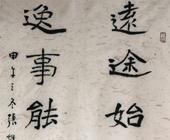 遠途始
逸事能
甲冬張